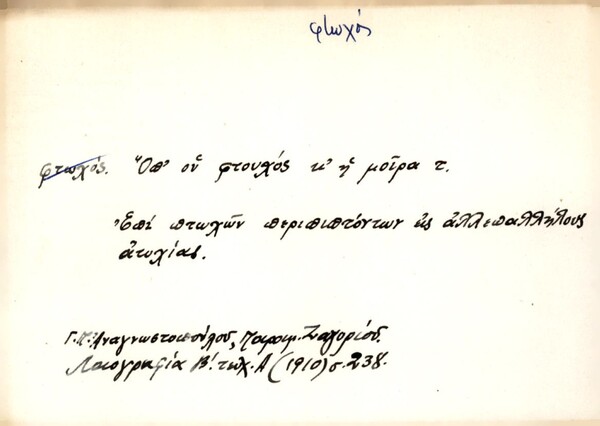 φτωχός
φτωχός. Ὅπ' οὗ φτουχός κ' ἡ μοῖρα τ.
Ἐπί πτωχῶν περιπιπτόντων εἰς ἀλλεπαλλήλους
ἀτυχίας.
Γ. Π. Ἀναγνωστοπούλου, Παροιμ. Ζαγορίου.
Λαογραφία Β'. τευχ. Α (1910) σ. 238.